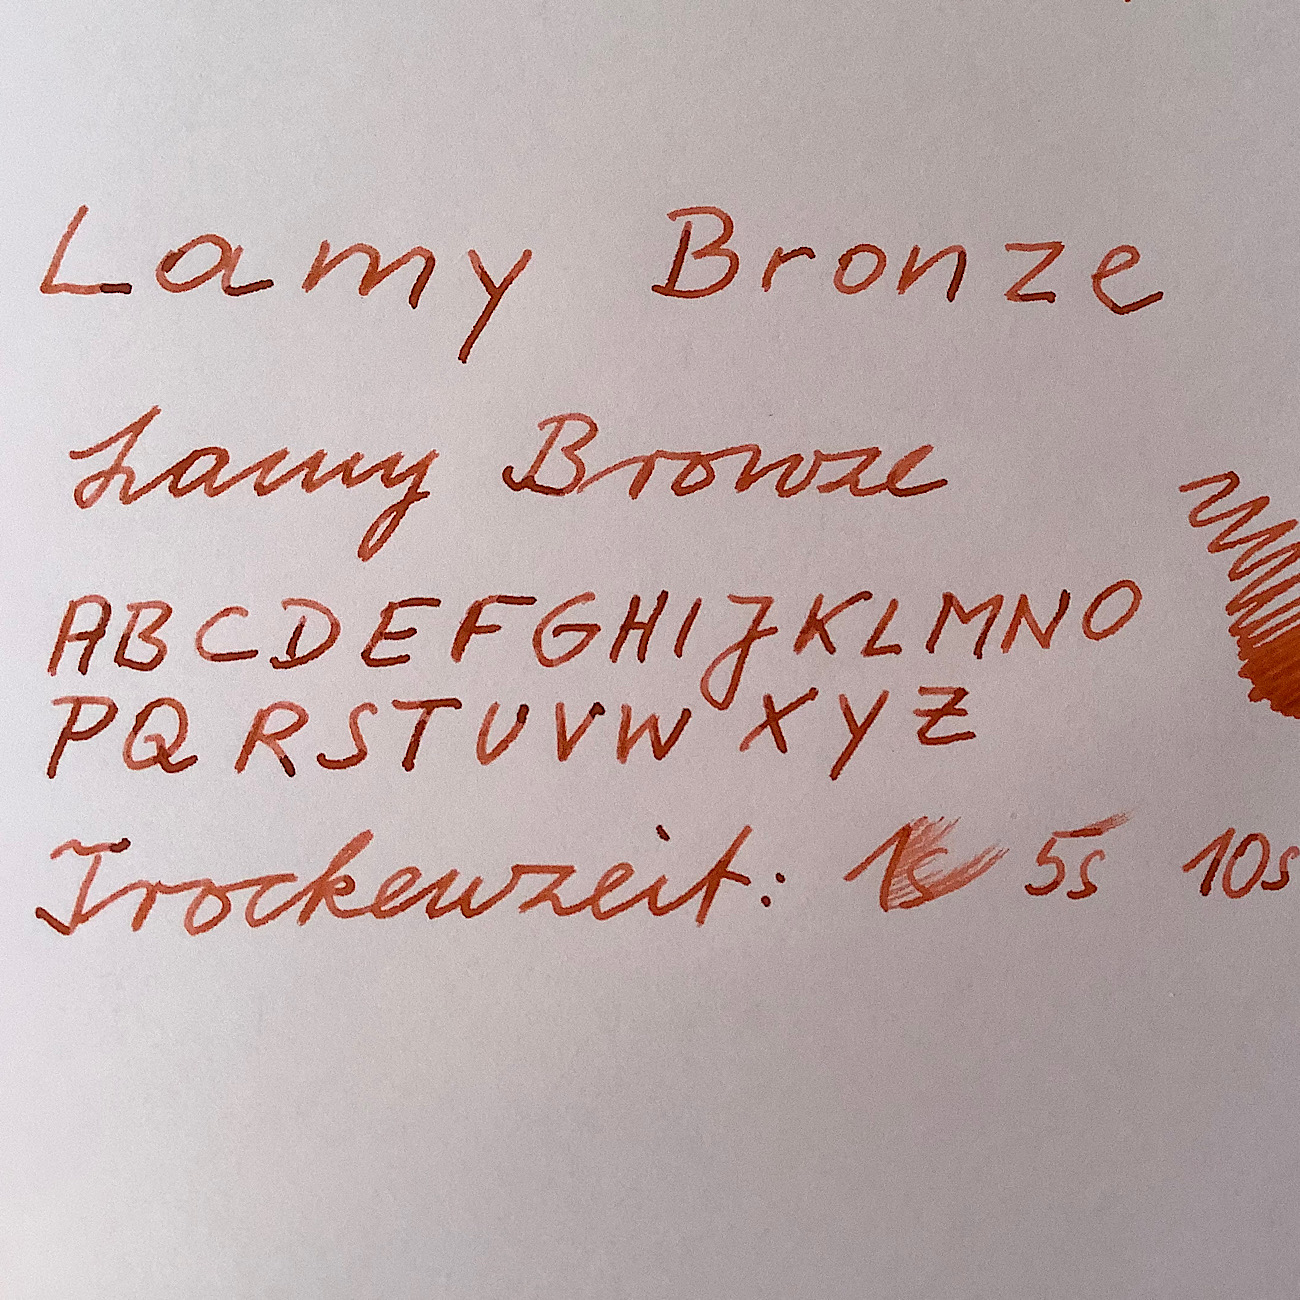 Lamy Bronze
Lamy Bronze
ABCDEFGHIJKLMNO
PQRSTUVWXYZ
Trockenzeit: 1s 5s 10s